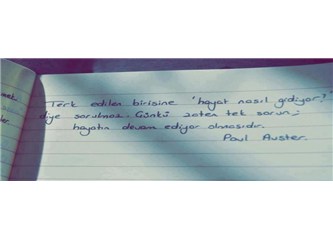 Terk edilen birisine "hayat nasıl gidiyor?"
diye sorulmaz. Çünkü zaten tek sorun;
hayatın devam ediyor olmasıdır.
Paul Auster.